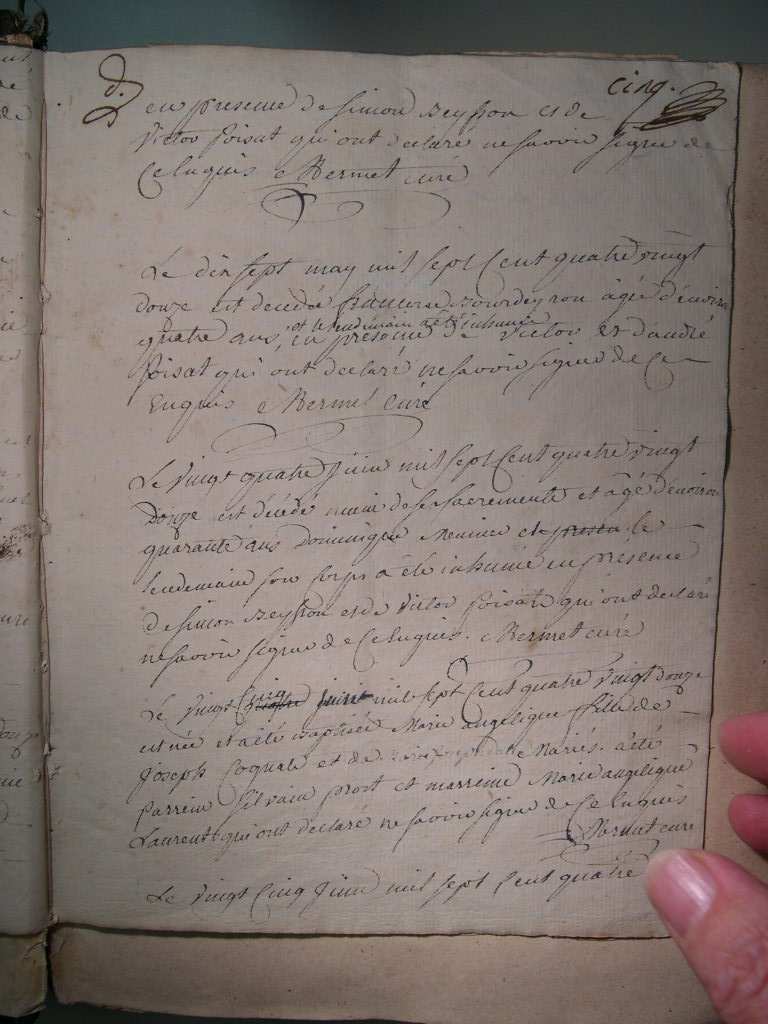 d. cinq.
en presence de simon Beysson et de
Victor poisat qui ont declaré ne savoir signer de
Ce Enquis Mermet curé
Le dix sept may mil sept Cent quatre vingt
douze est decedée françoise Bourdeyron âgée d'environ
et le lendemain a été inhumée
quatre ans, en presence de Victor et d'andré
poisat qui ont declaré ne savoir signer de Ce
Enquis Mermet Curé
Le vingt quatre juin mil sept Cent quatre vingt
Douze est décédé muni de ses sacrements et âgé d'environ
quarante ans Dominique Meunier et le
lendemain son corps a été inhumé en presence
de simon Beysson et de Victor poisat qui ont declaré
ne savoir signer de Ce Enquis. Mermet curé
Le vingt Cinq juin mil sept Cent quatre vingt douze
est née et a été baptisée Marie angelique fille de
joseph Coquate et de Mariés. a été
parrein silvain pront et marreine Marie angelique
Laurent qui ont declaré ne savoir signer de Ce Enquis
Mermet curé
Le vingt Cinq juin mil sept Cent quatre